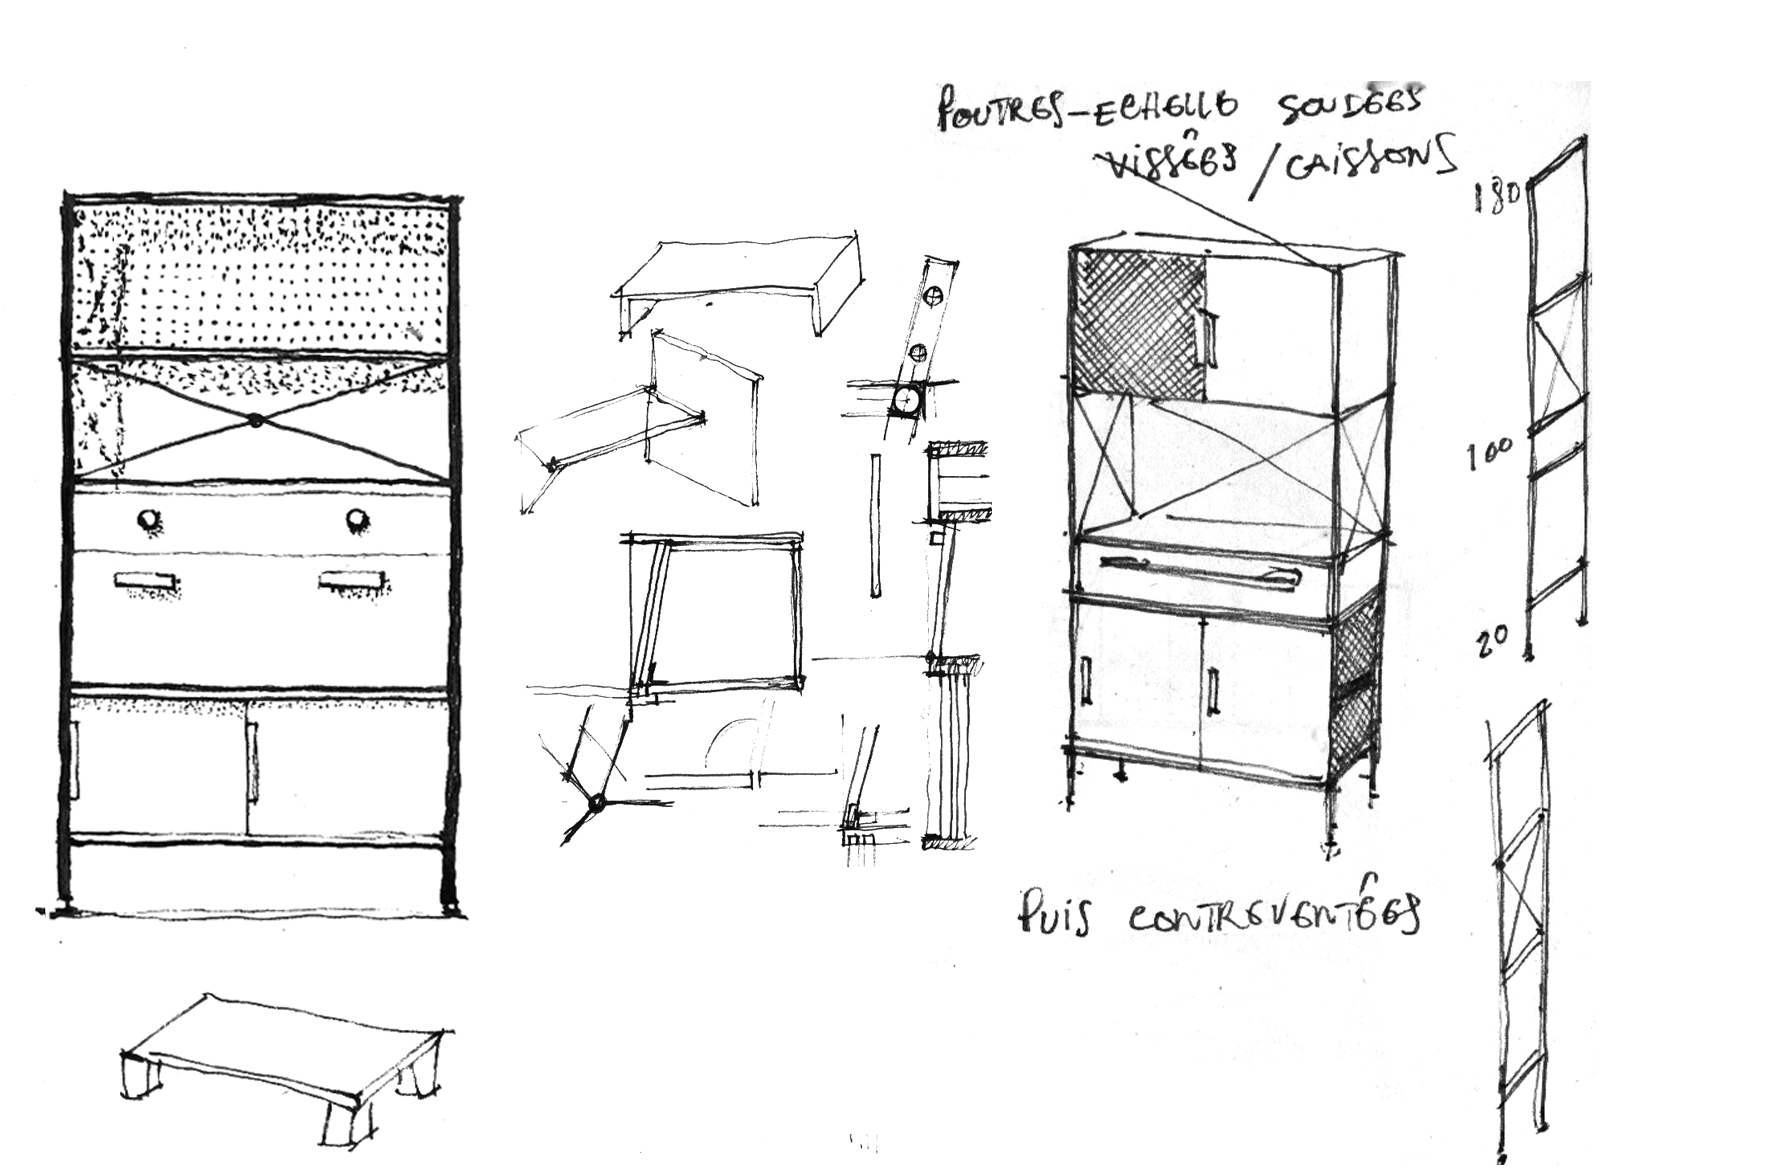 POUTRES-ECHELLE SOUDÉES
VISSÉES / CAISSONS
180
100
20
PUIS CONTREVENTÉES